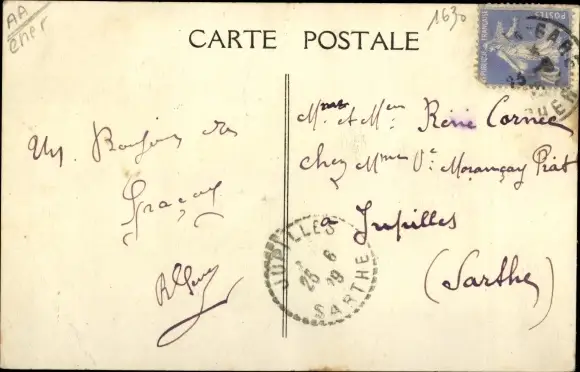 AA
Cher
1630
CARTE POSTALE
POSTES
Un Bonjour de
Graçay
Mme et Mr René Cornée
chez Mme Ve Morançay Piat
a Jupilles
(Sarthe)
JUPILLES
25 6
29
SARTHE